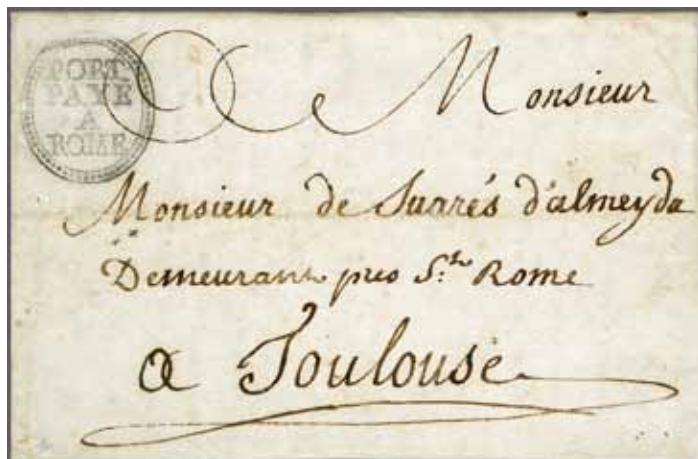 PORT
PAYE
A
ROME
Monsieur
Monsieur de Suarrés d'almeyda
Demeurant pres S.te Rome
a Toulouse